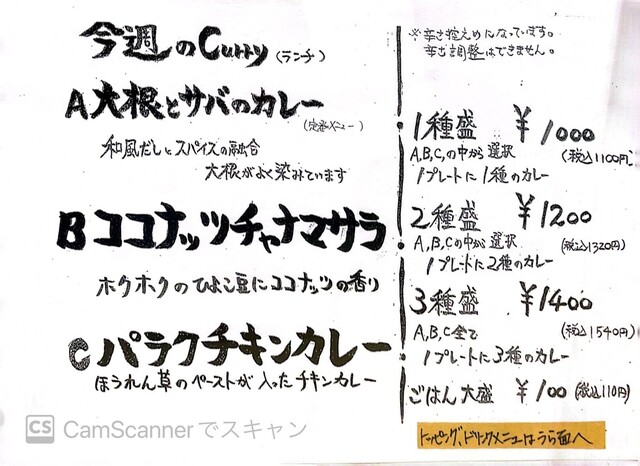 今週のCurry (ランチ)
A大根とサバのカレー
(定番メニュー)
和風だしとスパイスの融合
大根がよく染みています
Bココナッツチャナマサラ
ホクホクのひよこ豆にココナッツの香り
Cパラクチキンカレー
ほうれん草のペーストが入ったチキンカレー
※辛さ控えめになっています。
辛さ調整はできません。
1種盛 ¥1000
A,B,C,の中から選択 (税込1100円)
1プレートに1種のカレー
2種盛 ¥1200
A,B,Cの中から選択 (税込1320円)
1プレートに2種のカレー
3種盛 ¥1400
A,B,C全て (税込1540円)
1プレートに3種のカレー
ごはん大盛 ¥100 (税込110円)
トッピング、ドリンクメニューはうら面へ
CS CamScannerでスキャン